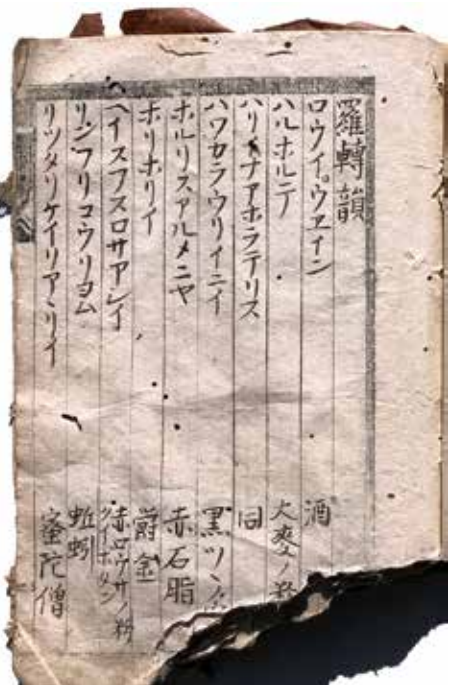 羅轉韻
ロウイ。ウヱイン 酒
ハルホルニテ 大麦ノ粉
ハリイナアホラテリス 同
ハワカラウリイニイ 黒ツヽ
ホルリスアルメニヤ 赤石脂
ホリホリイ 爵金
ヘイスフスロサアレイ 赤ロウサノ粉 クイホタン
リンフリコウリヨム 蚯蚓
リツタリケイリアヽリイ 蜜陀僧